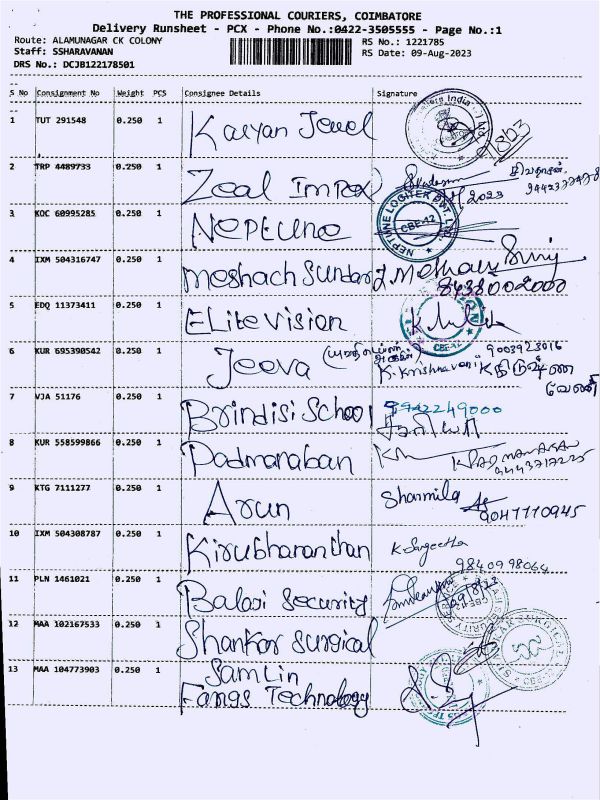 THE PROFESSIONAL COURIERS, COIMBATORE
Delivery Runsheet - PCX - Phone No.:0422-3505555 - Page No.:1
Route: ALAMUNAGAR CK COLONY RS No.: 1221785
Staff: SSHARAVANAN RS Date: 09-Aug-2023
DRS No.: DCJB122178501
S No Consignment No Weight PCS Consignee Details Signature
1 TUT 291548 0.250 1 Kalyan Jewel
2 TRP 4489733 0.250 1 Zeal Impex
3 KOC 60995285 0.250 1 NEPTUNE NEPTUNE LOGITEK PVT. LTD. CBE-12
4 IXM 504316747 0.250 1 Meshach Sundar 8438002000
5 EDQ 11373411 0.250 1 ELite Vision
6 KUR 695390542 0.250 1 Jeeva 9003923016
K. Krishnaveni
7 VJA 51176 0.250 1 Brindisi School 9942249000
8 KUR 558599866 0.250 1 Padmanaban
9 KTG 7111277 0.250 1 Arun Sharmila
9047770945
10 IXM 504308787 0.250 1 Kirubharanthan K. Sangeetha
9840998064
11 PLN 1461021 0.250 1 Balaji Security
12 MAA 102167533 0.250 1 Shankar Surgical
13 MAA 104773903 0.250 1 Samlin
Fangs Technology